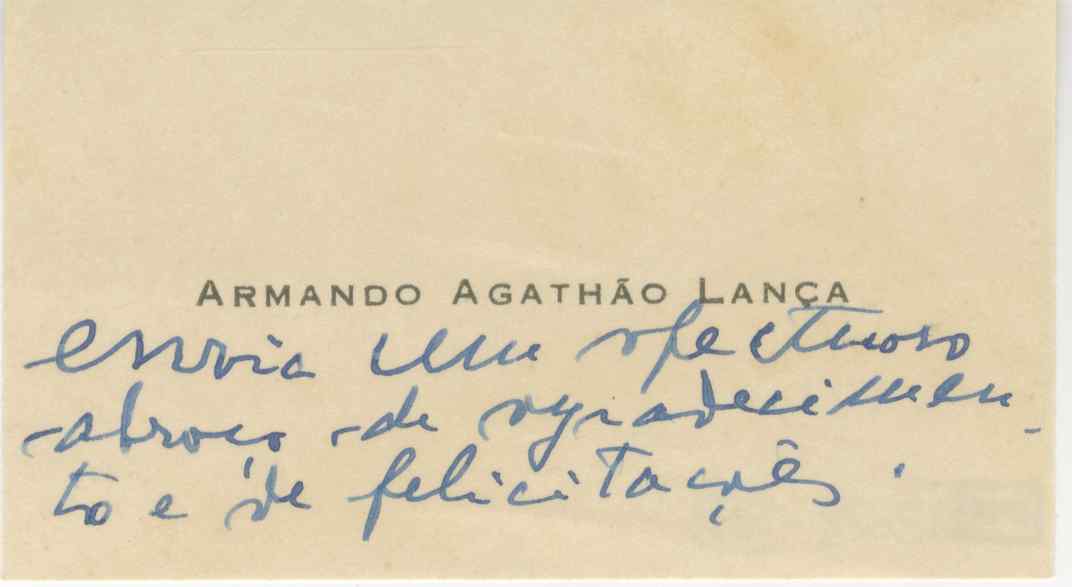 ARMANDO AGATHÃO LANÇA
envia um afectuoso
abraço de agradecimen-
to e de felicitações.